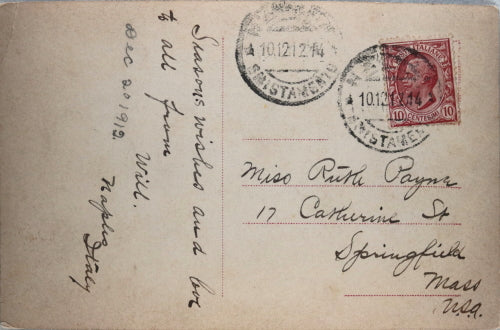 Seasons wishes and love
to all from
Will.
Dec 20 1912
Naples
Italy
10.12.12.14
SMISTAMENTO
10.12.12.14
SMISTAMENTO
10 CENTESIMI 10
Miss Ruth Payne
17 Catherine St
Springfield
Mass
USA